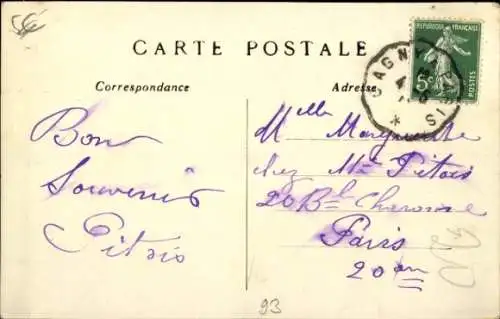 CARTE POSTALE
Correspondance
Adresse
REPUBLIQUE FRANÇAISE
5c
POSTES
GAGNY
Bon
Souvenir
Pitois
Melle Marguerite
chez Me Pitois
20 Bd Charonne
Paris
20em
93